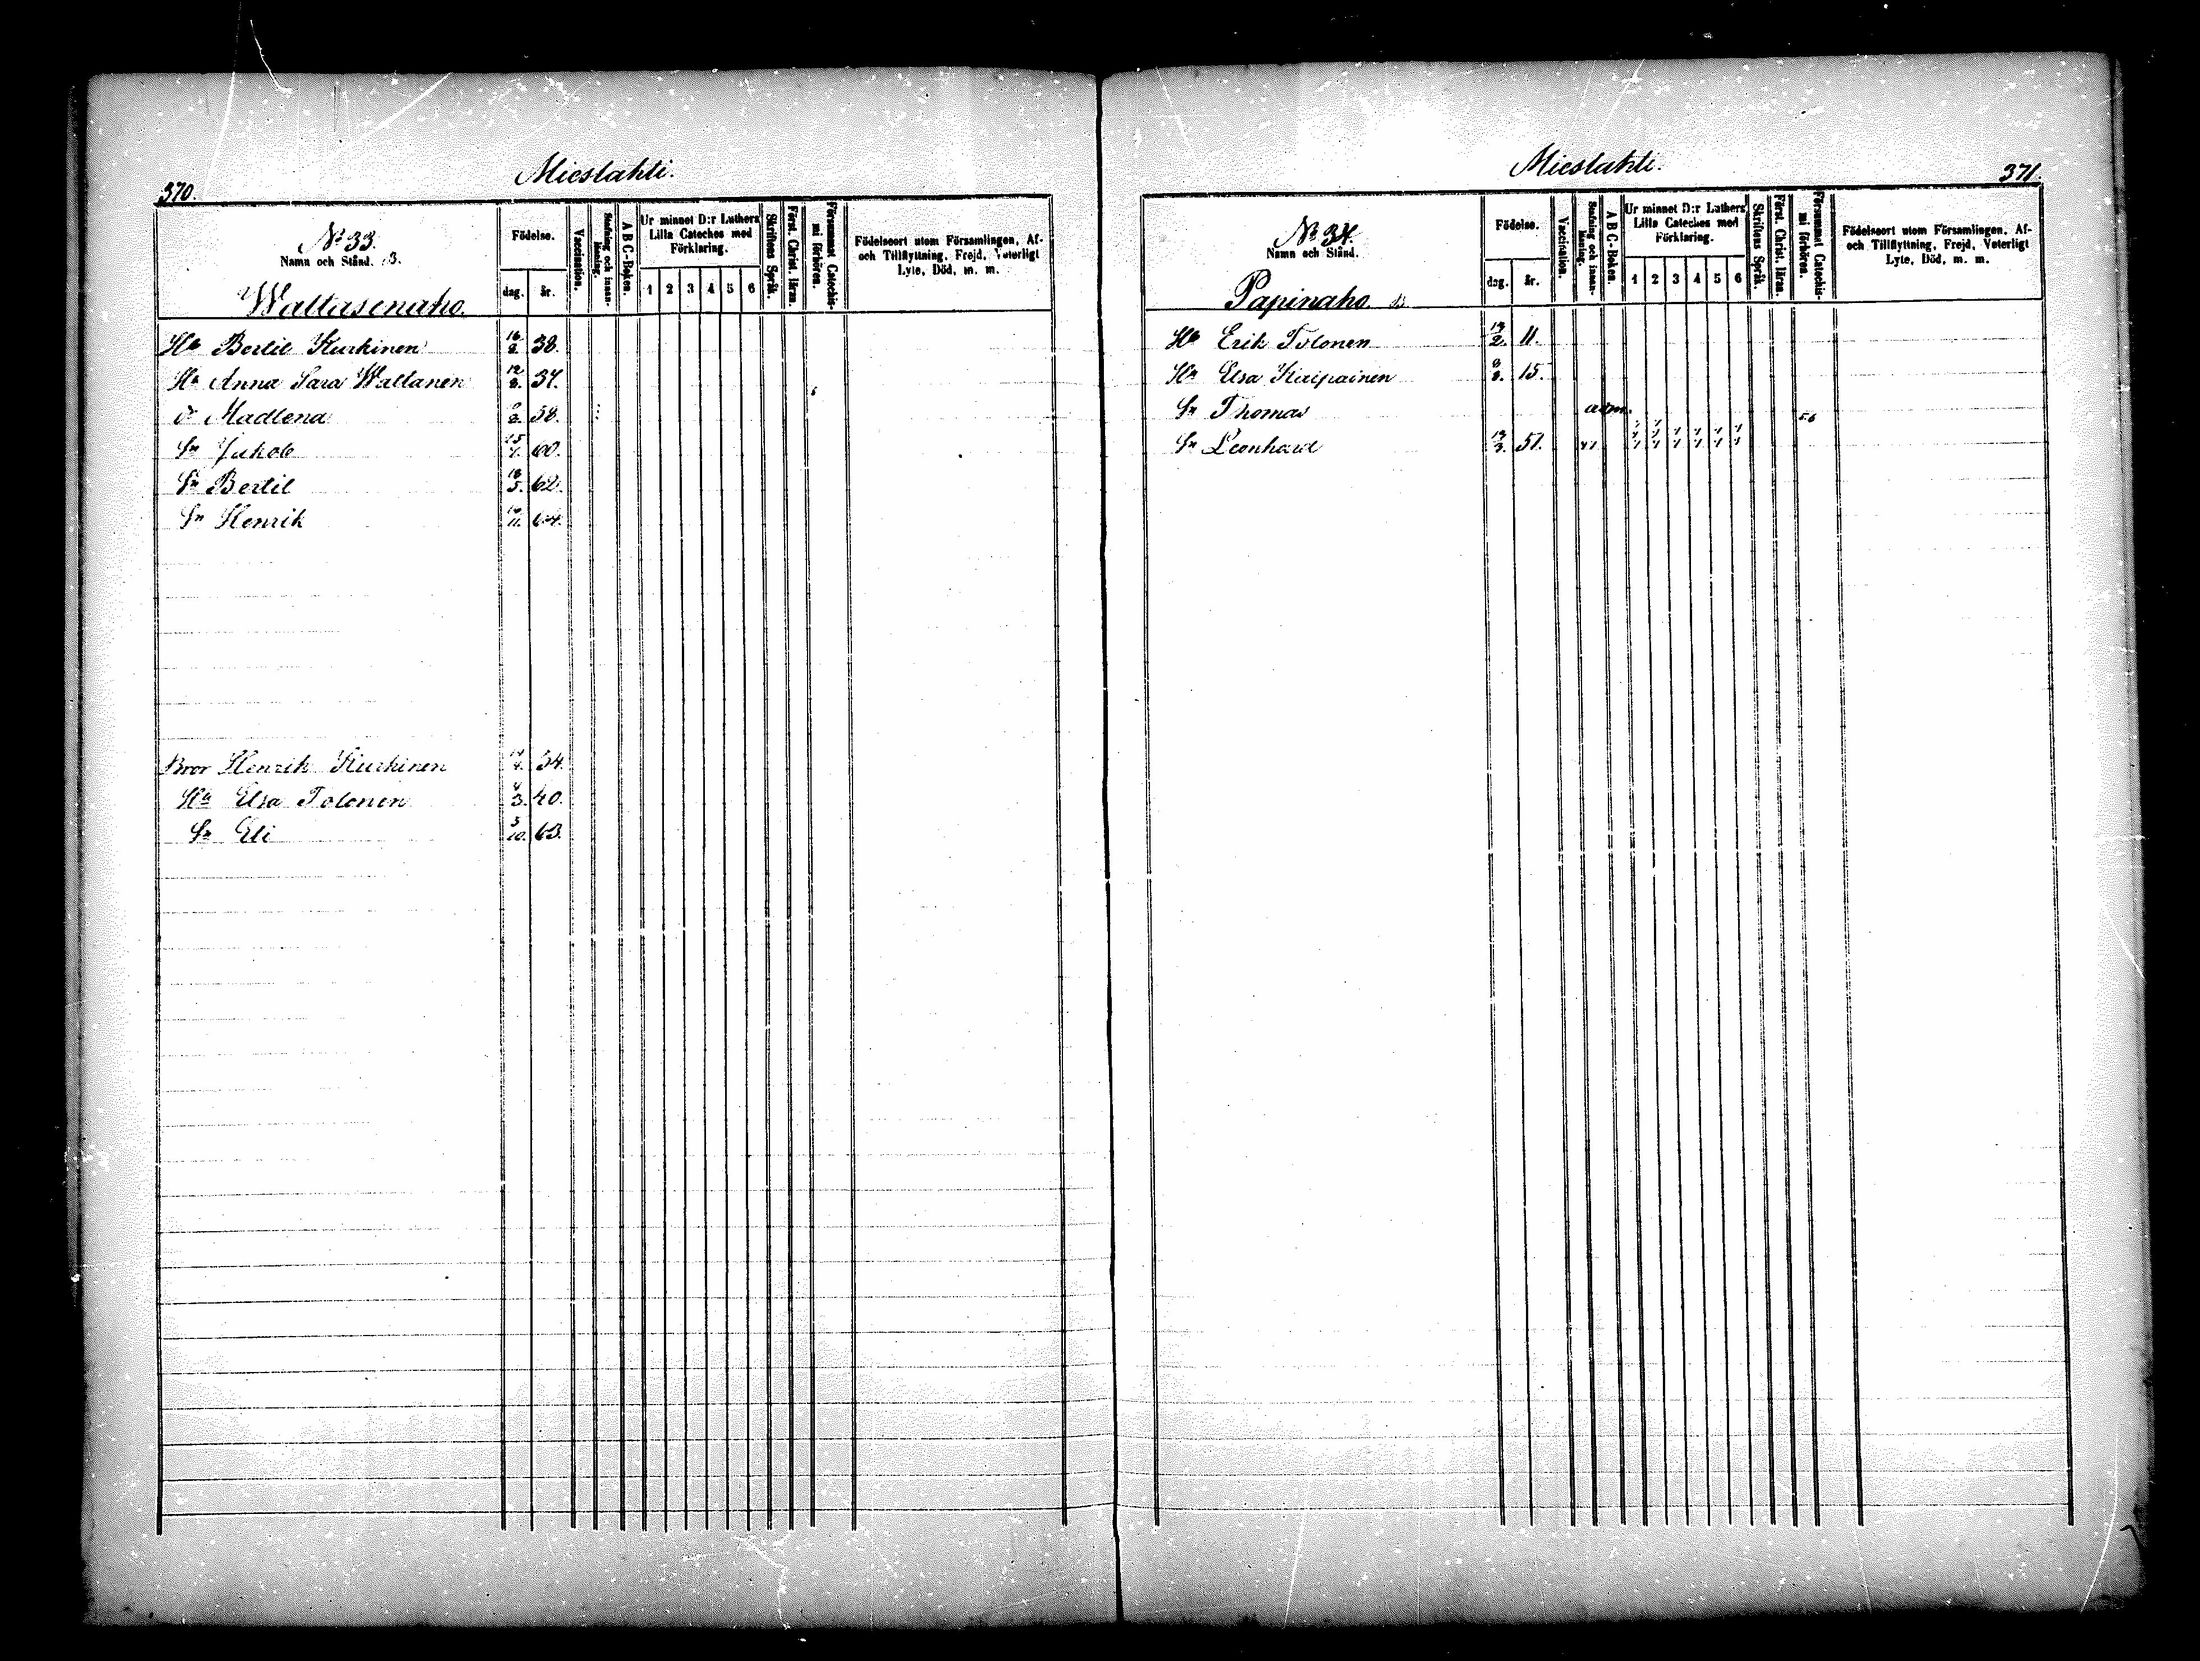 370.
Mieslahti.
Nº 33.
Namn och Stånd.
Waltasenaho.
Födelse.
dag. år.
Vaccination.
Stafning och innan-läsning.
A B C-Boken.
Ur minnet D:r Luthers
Lilla Cateches med
Förklaring.
1 2 3 4 5 6
Skriftens Språk.
Först. Christ. läran.
Försummat Catechis-
mi förhören.
Födelseort utom Församlingen, Af-
och Tillflyttning, Frejd, Vaterligt
Lyte, Död, m. m.
Hb Bertil Kurkinen 16/8. 38.
Ha Anna Sara Waltanen 12/8. 37.
dr Madlena 58.
Sn Jakob 60.
Sn Bertil 18/5. 62.
Sn Henrik 64.
Bror Henrik Kurkinen 34.
Ha Elsa Tolonen 4/3. 40.
Sn Eli 5/10. 63.
Mieslahti.
371.
Nº 34.
Namn och Stånd.
Papinaho.
Födelse.
dag. år.
Vaccination.
Stafning och innan-läsning.
A B C-Boken.
Ur minnet D:r Luthers
Lilla Cateches med
Förklaring.
1 2 3 4 5 6
Skriftens Språk.
Först. Christ. läran.
Försummat Catechis-
mi förhören.
Födelseort utom Församlingen, Af-
och Tillflyttning, Frejd, Vaterligt
Lyte, Död, m. m.
Hb Erik Tolonen 11.
Ha Elsa Kaipainen 15.
Sn Thomas adm. 56
Sn Leonhard 51.